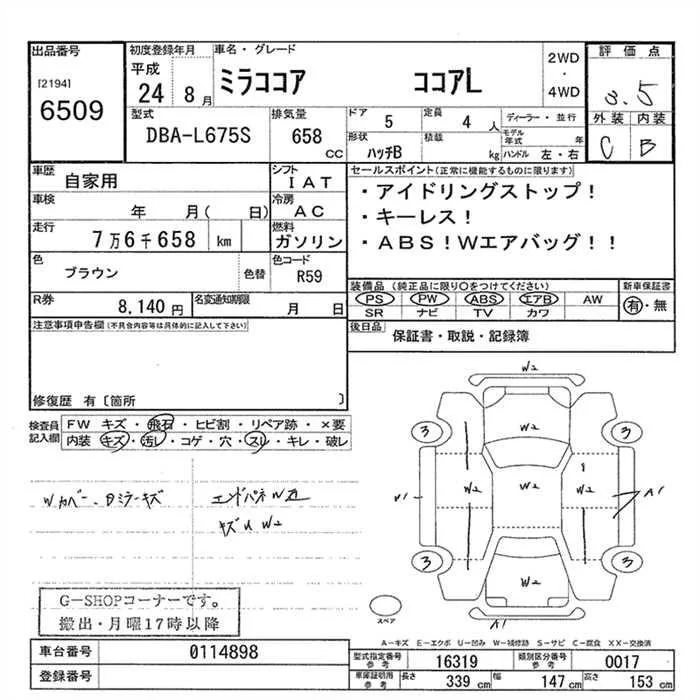 出品番号
[2194]
6509
初度登録年月
平成
24 8月
車名・グレード
ミラココア ココアL
2WD
・
4WD
評価点
3.5
外装 内装
C B
型式
DBA-L675S
排気量
658
CC
ドア
5
定員
4 人
形状
ハッチB
積載
kg
ディーラー・並行
モデル年式 年
ハンドル 左・右
車歴
自家用
シフト
IAT
車検
年 月( 日)
冷房
AC
走行
7万6千658 km
燃料
ガソリン
色
ブラウン
色替
色コード
R59
R券
8,140円
名変通知期限
月 日
セールスポイント(正常に機能するものに限ります)
・アイドリングストップ!
・キーレス!
・ABS!Wエアバッグ!!
装備品 (純正品に限り○をつけてください)
PS PW ABS エアB AW
SR ナビ TV カワ
新車保証書
有・無
後日品
保証書・取説・記録簿
注意事項申告欄(不具合内容等は具体的に記入して下さい)
修復歴 有〔箇所 〕
検査員記入欄
FW キズ・飛石・ヒビ割・リペア跡・×要
内装 キズ・汚レ・コゲ・穴・スレ・キレ・破レ
Wカバー、Dミラーキズ
エンドパネW
キズU W2
W2
3 3
W2
W2 W2 W2
A1
3 3
W2
A1
スペア
G-SHOPコーナーです。
搬出・月曜17時以降
A-キズ E-エクボ U-凹み W-補修跡 S-サビ C-腐食 XX-交換済
車台番号
0114898
登録番号
型式指定番号
参考
16319
類別区分番号
参考
0017
車庫証明用
参考
長さ 339cm 幅 147cm 高さ 153cm